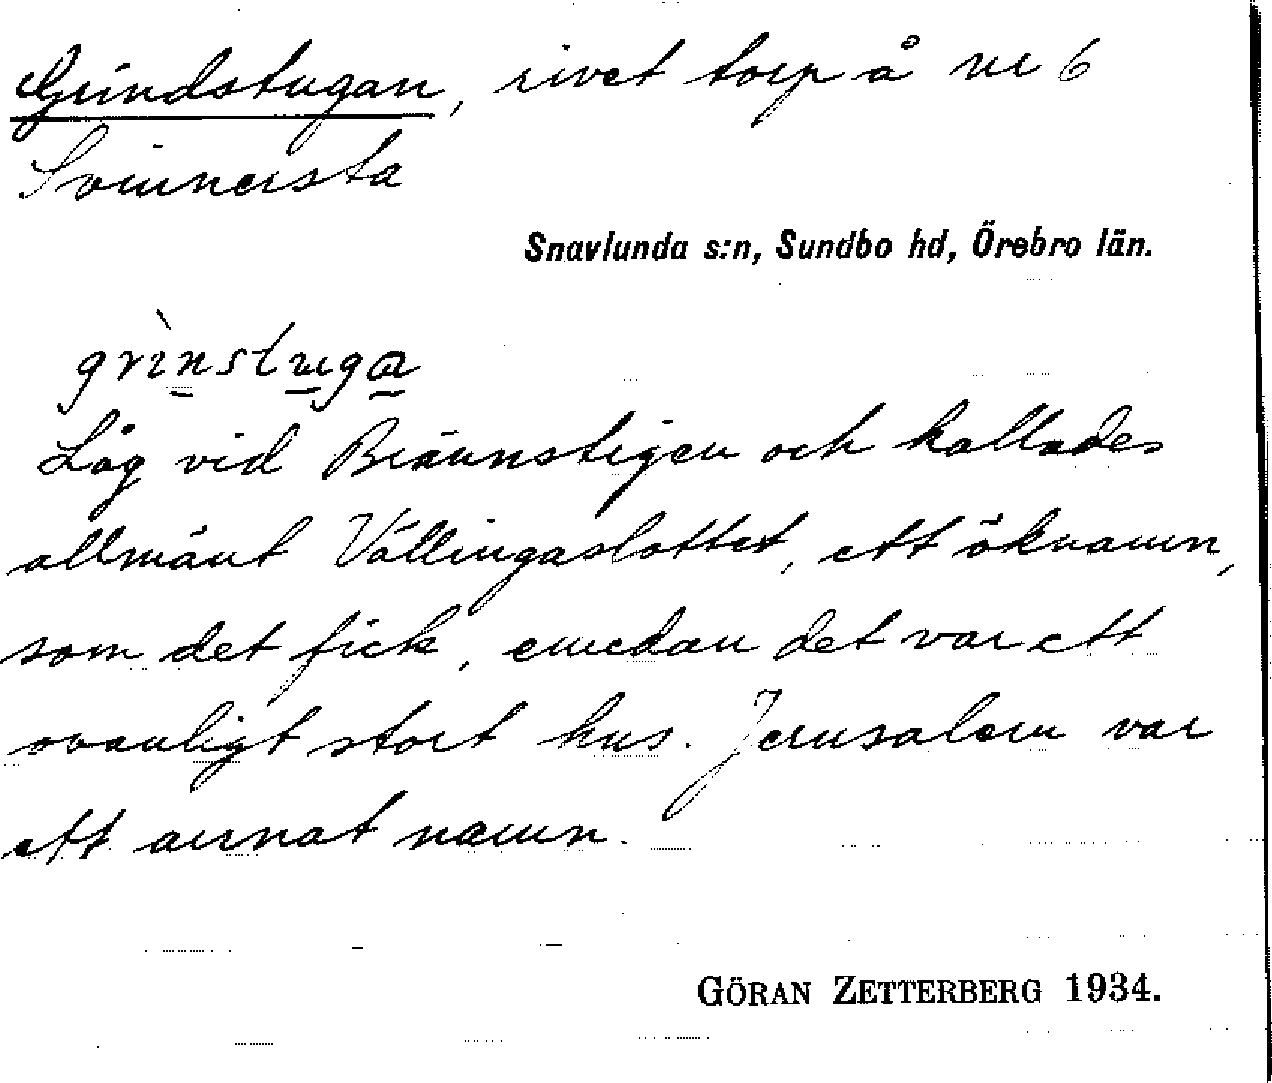 Grindstugan, rivet torp å nr 6
Svinnersta
Snavlunda s:n, Sundbo hd, Örebro län.
grìnstuga
Låg vid Brännstigen och kallades
allmänt Vällingaslottet, ett öknamn,
som det fick, emedan det var ett
ovanligt stort hus. Jerusalem var
ett annat namn.
GÖRAN ZETTERBERG 1934.